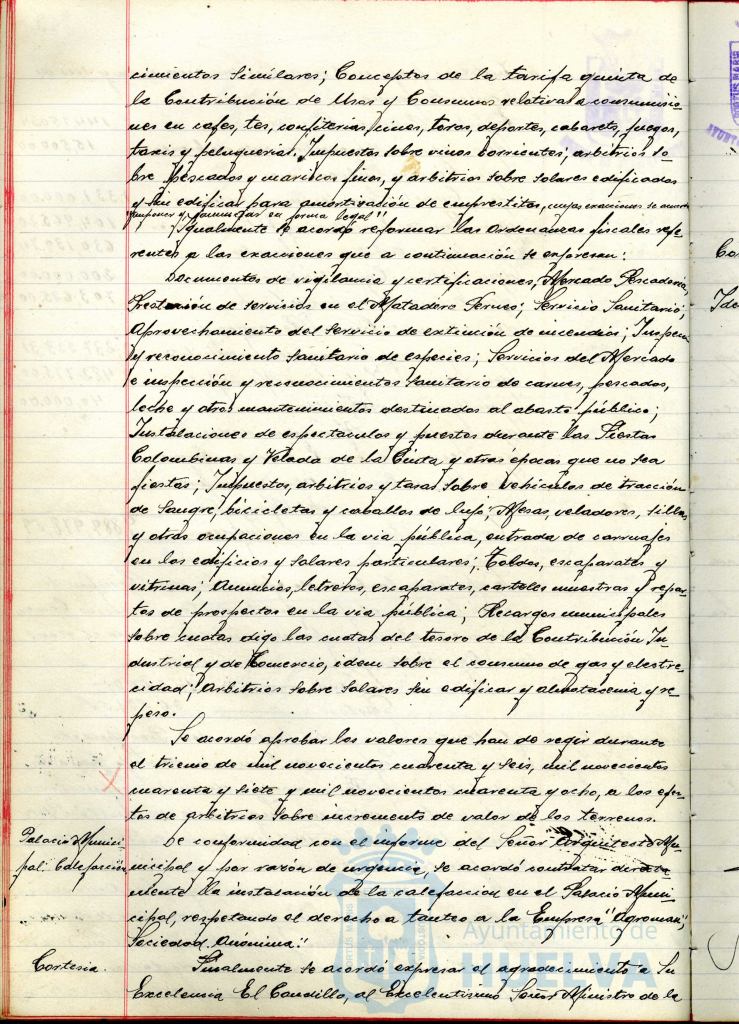 cimientos similares; Conceptos de la tarifa quinta de
la Contribución de Usos y Consumos relativa a consumisio-
nes en cafes, tes, confiterias, cines, toros, deportes, cabarets, fuegos,
taxis y peluquerias. Impuestos sobre vinos corrientes; arbitrios so-
bre pescados y mariscos finos, y arbitrios sobre solares edificados
y sin edificar para amortización de emprestitos, cuyas exacciones se acuerda
imponer y formular en forma legal"
Igualmente se acordó reformar las Ordenanzas fiscales refe-
rentes a las exacciones que a continuación se expresan:
Documentos de vigilancia y certificaciones, Mercado Pescaderia,
Prestación de servicios en el Matadero Ferneo; Servicio Sanitario;
Aprovechamiento del servicio de extinción de incendios; Inspección
y reconocimiento sanitario de especies; Servicios del Mercado
e inspección y reconocimientos sanitario de carnes, pescados,
leche y otros mantenimientos destinados al abasto público;
Instalaciones de espectaculos y puestos durante las Fiestas
Colombinas y Velada de la Cinta y otras épocas que no sea
fiestas; Impuestos, arbitrios y tasas sobre vehiculos de tracción
de sangre, bicicletas y caballos de lujo; Mesas, veladores, sillas
y otras ocupaciones en la via pública, entrada de carruajes
en los edificios y solares particulares; Toldos, escaparates y
vitrinas; Anuncios, letreros, escaparates, carteles muestras y repar-
tos de prospectos en la via pública; Recargos municipales
sobre cuotas digo las cuotas del tesoro de la Contribución In-
dustrial y de Comercio, idem sobre el consumo de gas y electri-
cidad; Arbitrios sobre solares sin edificar y almotacenia y re-
peso.
Se acordó aprobar los valores que han de regir durante
el trienio de mil novecientos cuarenta y seis, mil novecientos
cuarenta y siete y mil novecientos cuarenta y ocho, a los efec-
tos de arbitrios sobre incremento de valor de los terrenos.
Palacio Munici-
pal. Calefacción
De conformidad con el informe del Señor Arquitecto Mu-
nicipal y por razón de urgencia, se acordó contratar directa-
mente la instalación de la calefaccion en el Palacio Muni-
cipal, respetando el derecho a tanteo a la Empresa "Agroman,
Sociedad Anónima".
Cortesia.
Finalmente se acordó expresar el agradecimiento a Su
Excelencia El Caudillo, al Excelentisimo Señor Ministro de la
Ayuntamiento de
HUELVA